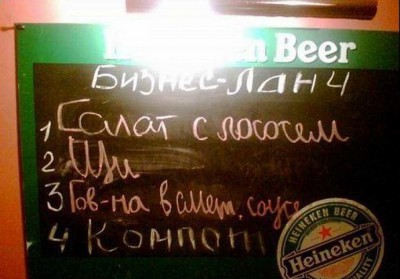 Heineken Beer
Бизнес-Ланч
1 Салат с лососем
2 Щи
3 Гов-на в смет. соусе
4 Компот
HEINEKEN BEER
Heineken
QUALITY